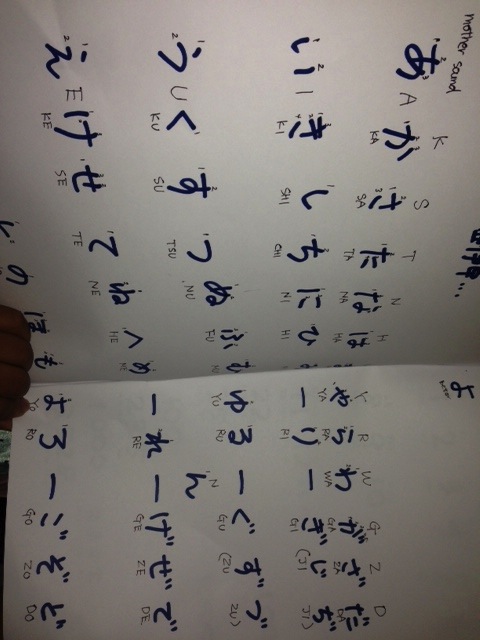 mother sound
K S T N H Y R W G Z D
あ A か KA さ SA た TA な NA は HA や YA ら RA わ WA が GA ざ ZA だ DA
い I き KI し SHI ち CHI に NI ひ HI ー り RI ー ぎ GI じ (JI ぢ JI)
う U く KU す SU つ TSU ぬ NU ふ FU ゆ YU る RU ー ぐ GU ず (ZU づ ZU)
ん N
え E け KE せ SE て TE ね NE へ HE め ー れ RE ー げ GE ぜ ZE で DE
の ほ も よ YO ろ RO ー ご GO ぞ ZO ど DO